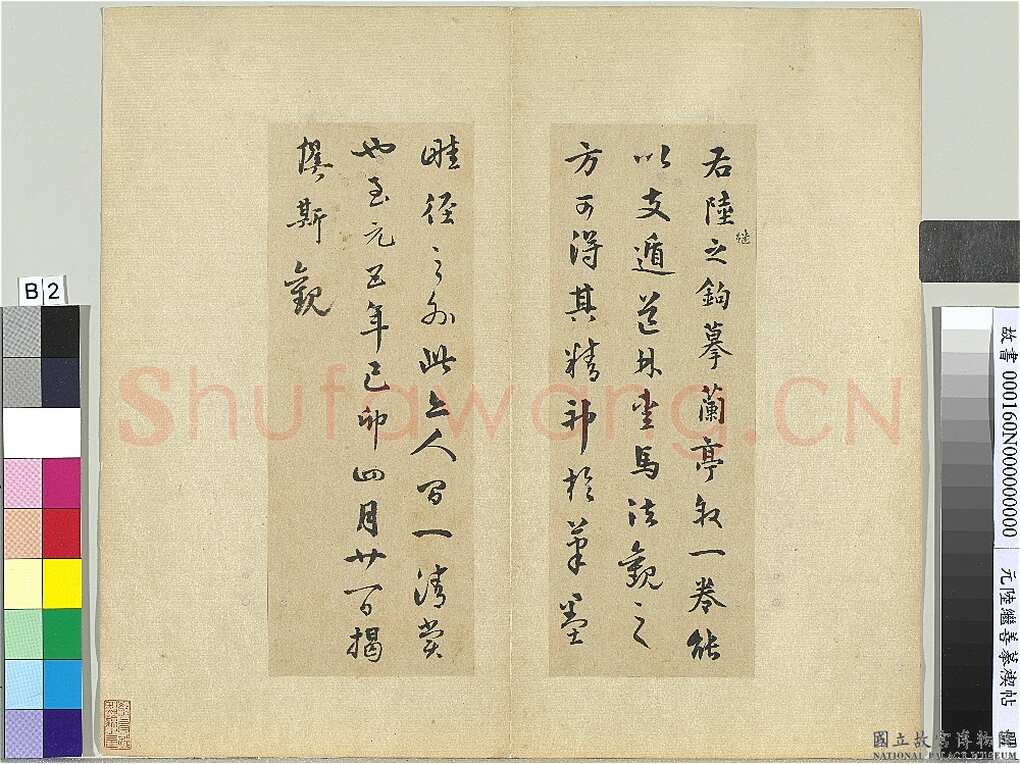 右陸之鉤摹蘭亭叙一卷能
継
以支遁道林馬法觀之
方可得其精神於筆墨
畦徑之外此亦人間一清賞
也至元五年己卯四月廿一日揭
傒斯觀
B 2
Shufawang.CN
故書 000160N000000000 元陸繼善摹禊帖
國立故宮博物院
NATIONAL PALACE MUSEUM